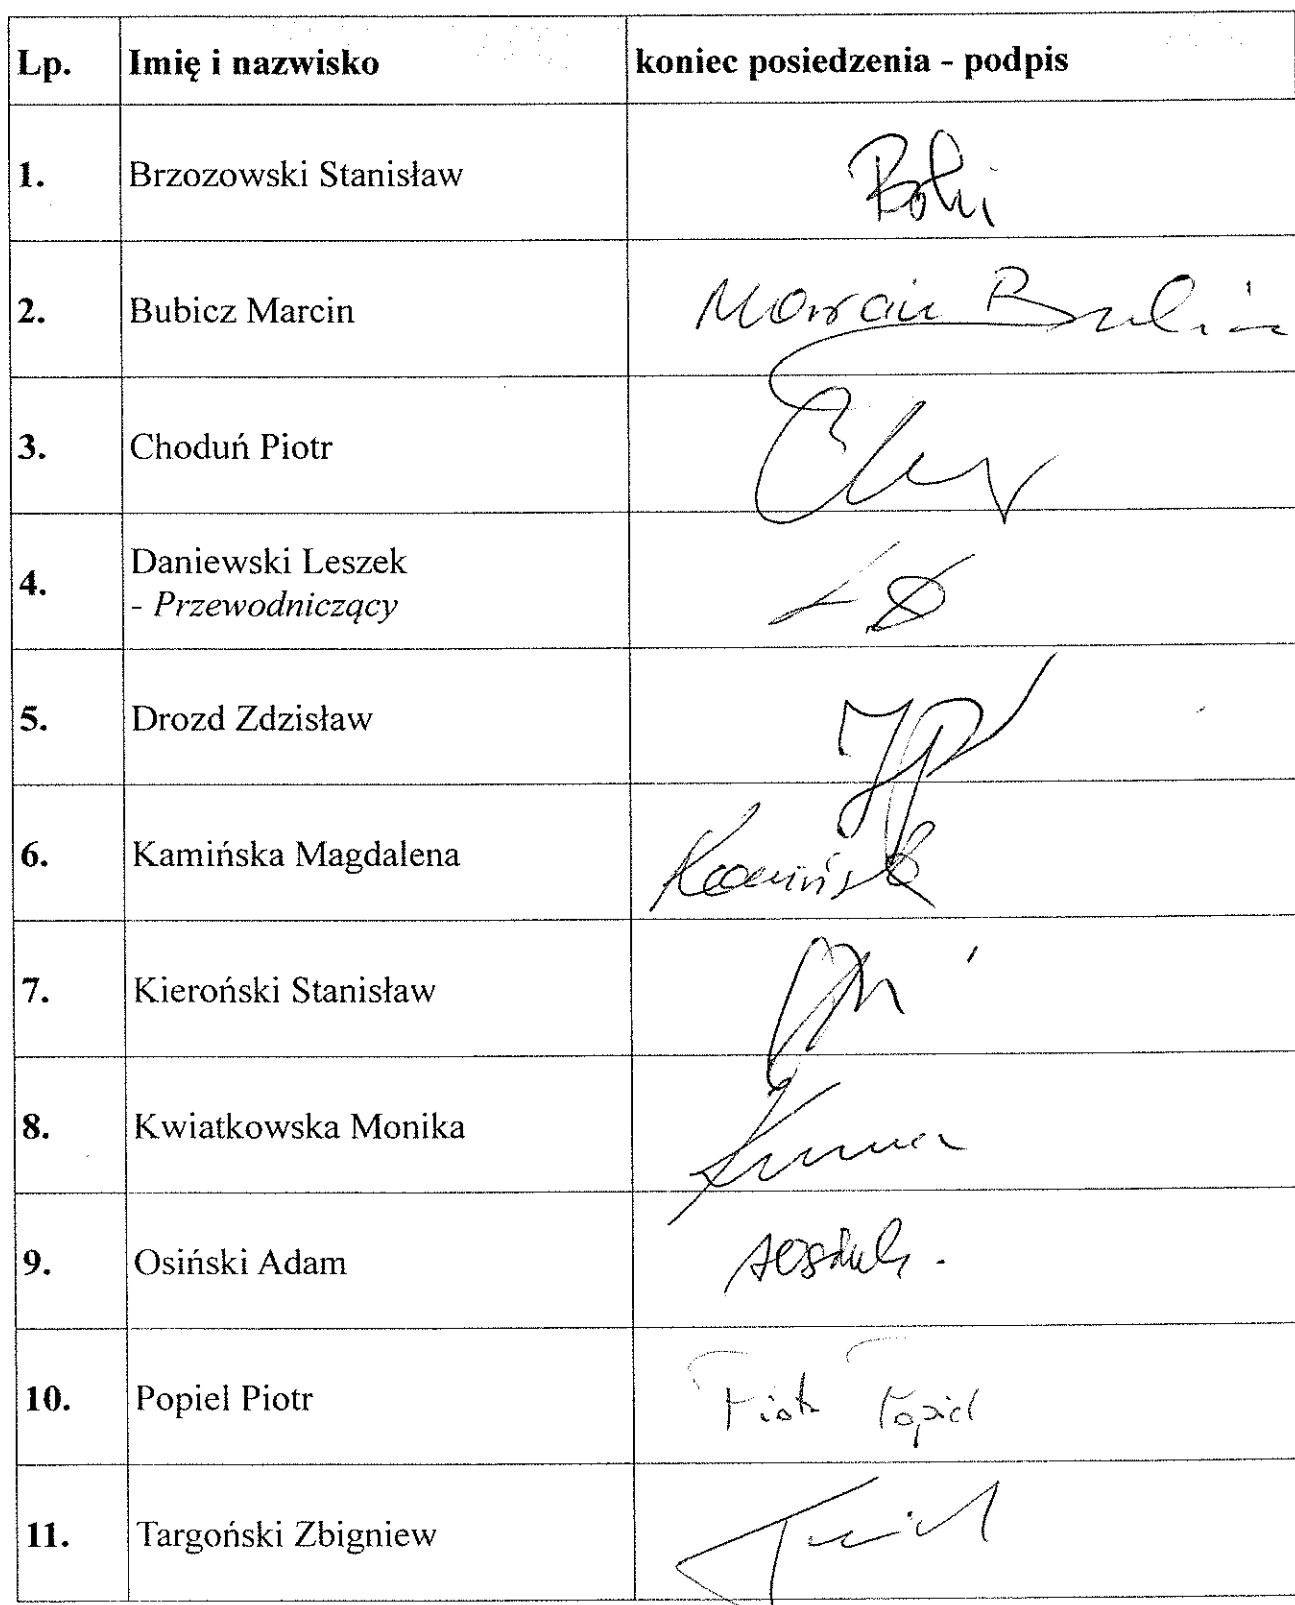 Lp. Imię i nazwisko koniec posiedzenia - podpis
1. Brzozowski Stanisław
2. Bubicz Marcin Marcin
3. Choduń Piotr
4. Daniewski Leszek
- Przewodniczący
5. Drozd Zdzisław
6. Kamińska Magdalena
7. Kieroński Stanisław
8. Kwiatkowska Monika
9. Osiński Adam
10. Popiel Piotr Piotr Popiel
11. Targoński Zbigniew